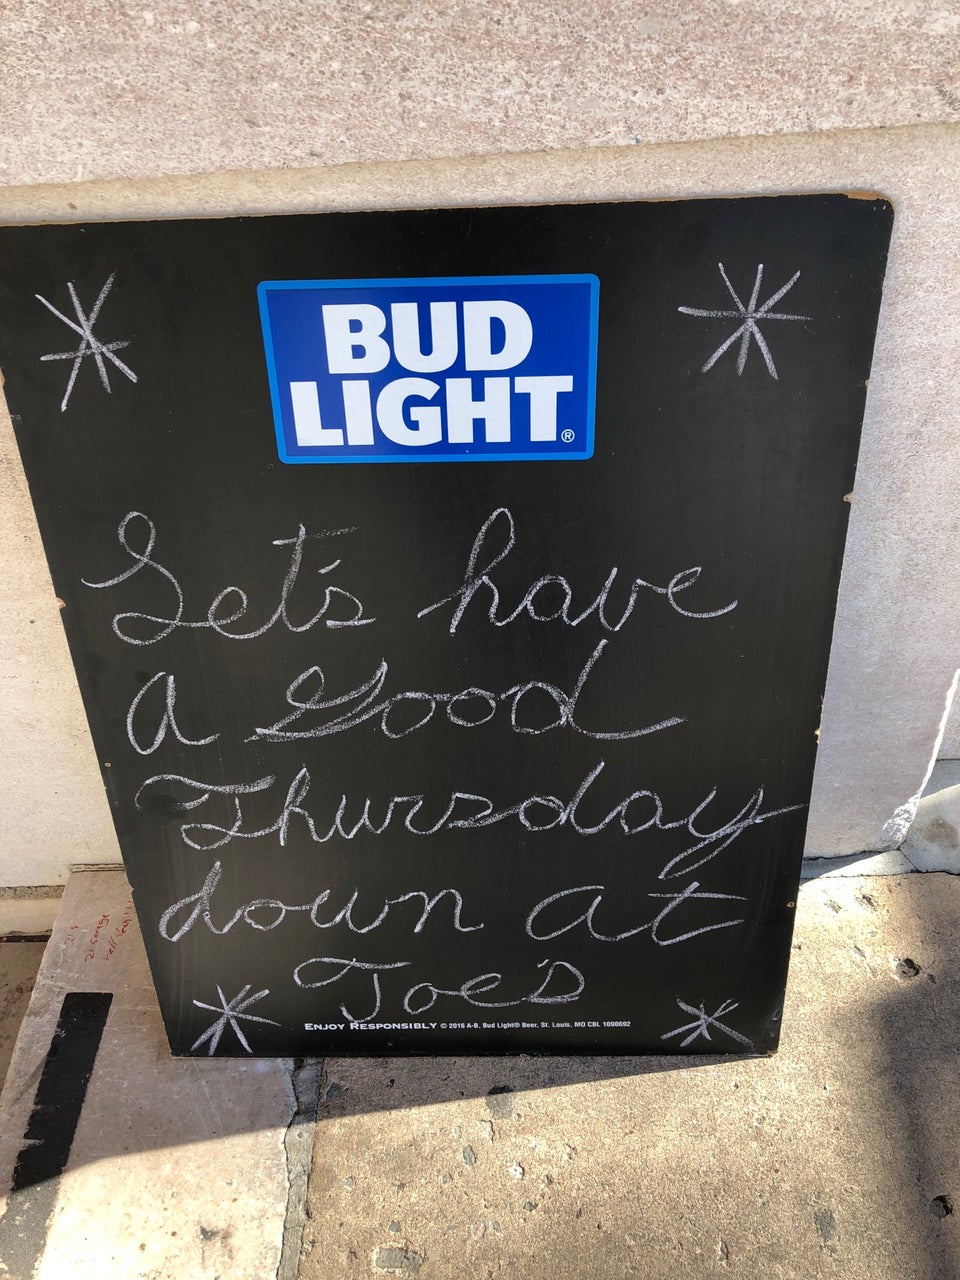 BUD
LIGHT®
Let's have
a Good
Thursday
down at
Joe's
ENJOY RESPONSIBLY © 2016 A-B, Bud Light® Beer, St. Louis, MO CBL 1090692